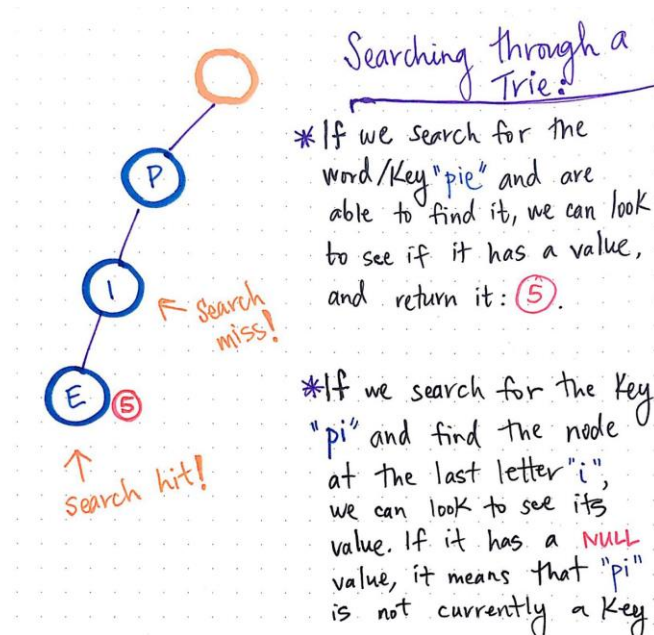 Searching through a
Trie:
*If we search for the
word/Key "pie" and are
able to find it, we can look
to see if it has a value,
and return it: 5.
*If we search for the Key
"pi" and find the node
at the last letter "i",
we can look to see its
value. If it has a NULL
value, it means that "pi"
is not currently a Key
P
I
← search
miss!
E 5
↑
search hit!